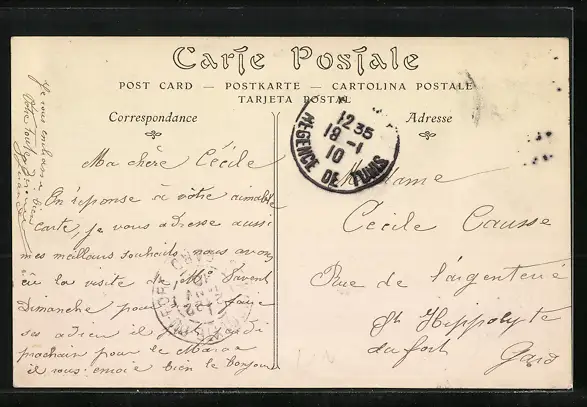 Carte Postale
POST CARD — POSTKARTE — CARTOLINA POSTALE
TARJETA POSTAL
Correspondance
Adresse
12 35
18 - 1
10
REGENCE DE TUNIS
Ma chère Cécile
En réponse à votre aimable
carte, je vous adresse aussi
mes meilleurs souhaits, nous avons
eu la visite de Mr
Dimanche pour faire
ses adieu il jeudi
prochain pour le Maroc
il vous envoie bien le bonjour
Je vous embrasse bien
Votre toute
Madame
Cécile Causse
Rue de l'argenterie
St Hippolyte
du fort Gard